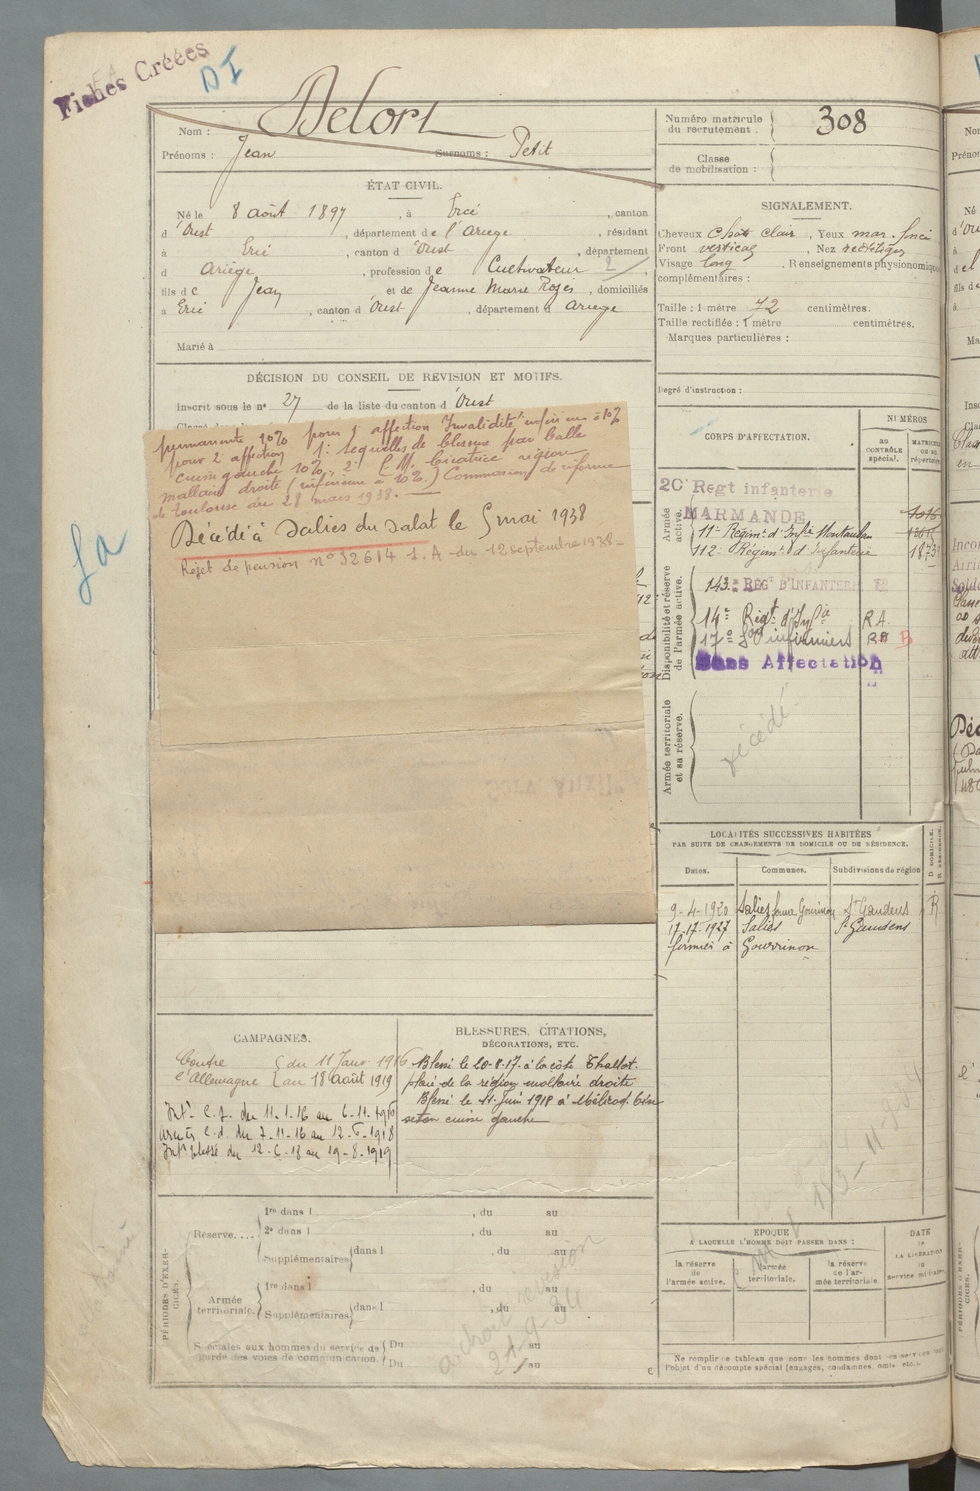 Fiches Créées
DI
Nom : Delort
Prénoms : Jean Surnoms : Petit
Numéro matricule du recrutement : 308
Classe de mobilisation :
ÉTAT CIVIL.
Né le 8 août 1897, à Ercé, canton
d'Oust, département de l'Ariège, résidant
à Ercé, canton d'Oust, département
d Ariège, profession de Cultivateur 2
fils de Jean et de Jeanne Marie Rozes, domiciliés
à Ercé, canton d'Oust, département d Ariège
Marié à
SIGNALEMENT.
Cheveux Chât clair, Yeux mar. foncé
Front vertical, Nez rectiligne
Visage long, Renseignements physionomiques
complémentaires :
Taille : 1 mètre 72 centimètres.
Taille rectifiée : 1 mètre centimètres.
Marques particulières :
Degré d'instruction :
DÉCISION DU CONSEIL DE REVISION ET MOTIFS.
Inscrit sous le n° 27 de la liste du canton d'Oust
permanente 10% pour 1 affection Invalidité inférieure à 10%
pour 2 affection 1° Sequelles de blessure par balle
cuisse gauche 10%, 2° P.M. cicatrice région
mallaire droite (inférieure à 10%) Commission de réforme
de Toulouse du 28 mars 1938.
Décédé à Salies du Salat le 5 mai 1938
Rejet de pension n° 32614 S.A du 12 septembre 1938
CORPS D'AFFECTATION.
NUMÉROS
au contrôle spécial.
MATRICULE ou au répertoire
Armée active.
20e Regt infanterie
MARMANDE
11e Régim. d'Infie Montauban
112e Régim. d'Infanterie 1873
Disponibilité et réserve de l'armée active.
143e REGt D'INFANTERIE
14e Régt d'Infie RA
17e Son infirmiers RA B
Sans Affectation
Armée territoriale et sa réserve.
décédé
LOCALITÉS SUCCESSIVES HABITÉES
PAR SUITE DE CHANGEMENTS DE DOMICILE OU DE RÉSIDENCE.
Dates. Communes. Subdivisions de région D DOMICILE. R RÉSIDENCE.
9-4-1920 Salies ferme Gourrinon St Gaudens R
17-17-1927 Salies St Gaudens
fermier à Gourrinon
CAMPAGNES.
Contre l'Allemagne { du 11 Janv. 1916
au 18 août 1919
Intr C.S. du 11-1-16 au 6-11-1916
Armées C.d. du 7-11-16 au 12-6-1918
Intr blessé du 12-6-18 au 19-8-1919
BLESSURES, CITATIONS,
DÉCORATIONS, ETC.
Blessé le 20-8-17 à la côte Thallot.
plaie de la région mallaire droite
Blessé le 11 Juin 1918 à Mélicocq Oise
seton cuisse gauche
PÉRIODES D'EXERCICES.
Réserve....
1re dans l , du au
2e dans l , du au
Supplémentaires dans l , du au
Armée territoriale.
1re dans l , du au
Supplémentaires dans l , du au
Spéciales aux hommes du service de garde des voies de communication.
Du au
Du au
a droit revesion
21-9-34
EPOQUE
A LAQUELLE L'HOMME DOIT PASSER DANS :
la réserve de l'armée active.
l'armée territoriale.
la réserve de l'armée territoriale.
DATE
de
LA LIBÉRATION
du
service militaire.
Ne remplir ce tableau que pour les hommes dont les services font
l'objet d'un décompte spécial (engagés, condamnés, omis, etc.).